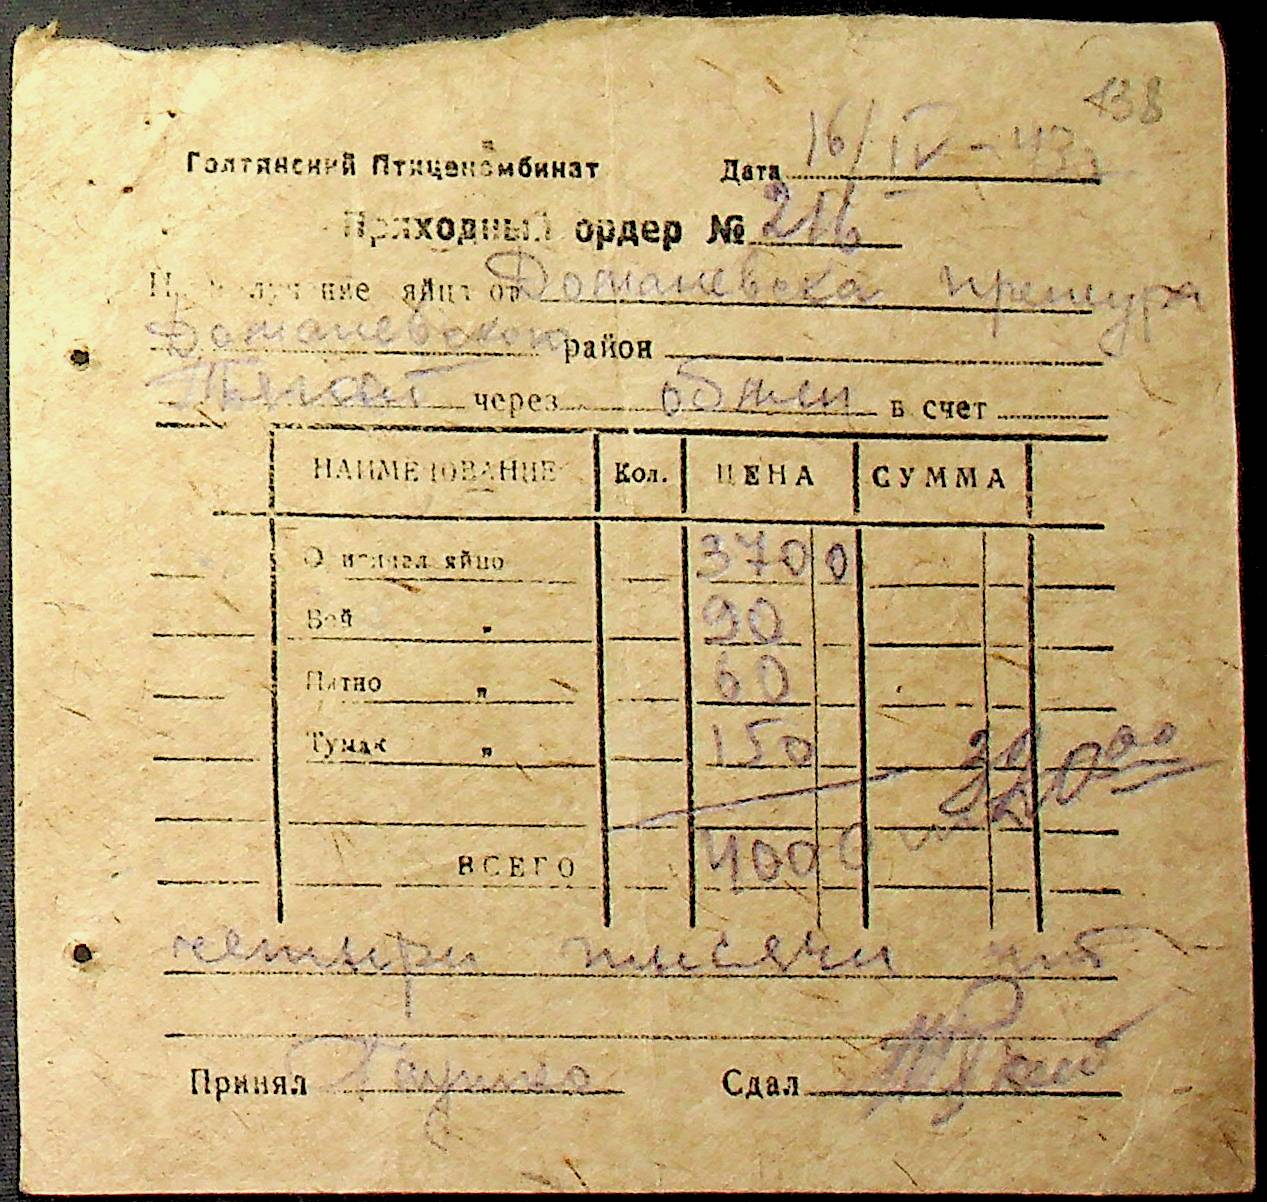 138
Голтянский Птицекомбинат Дата 16/IV-43
Приходный ордер № 216
На получение яйца от Доманевска претура
Доманевском район
через обмен в счет
НАИМЕНОВАНИЕ Кол. ЦЕНА СУММА
яйцо 3700
Бой " 90
Пятно " 60
Тумак " 150
320 00
ВСЕГО 4000 шт
четыри тисячи шт
Принял Сдал